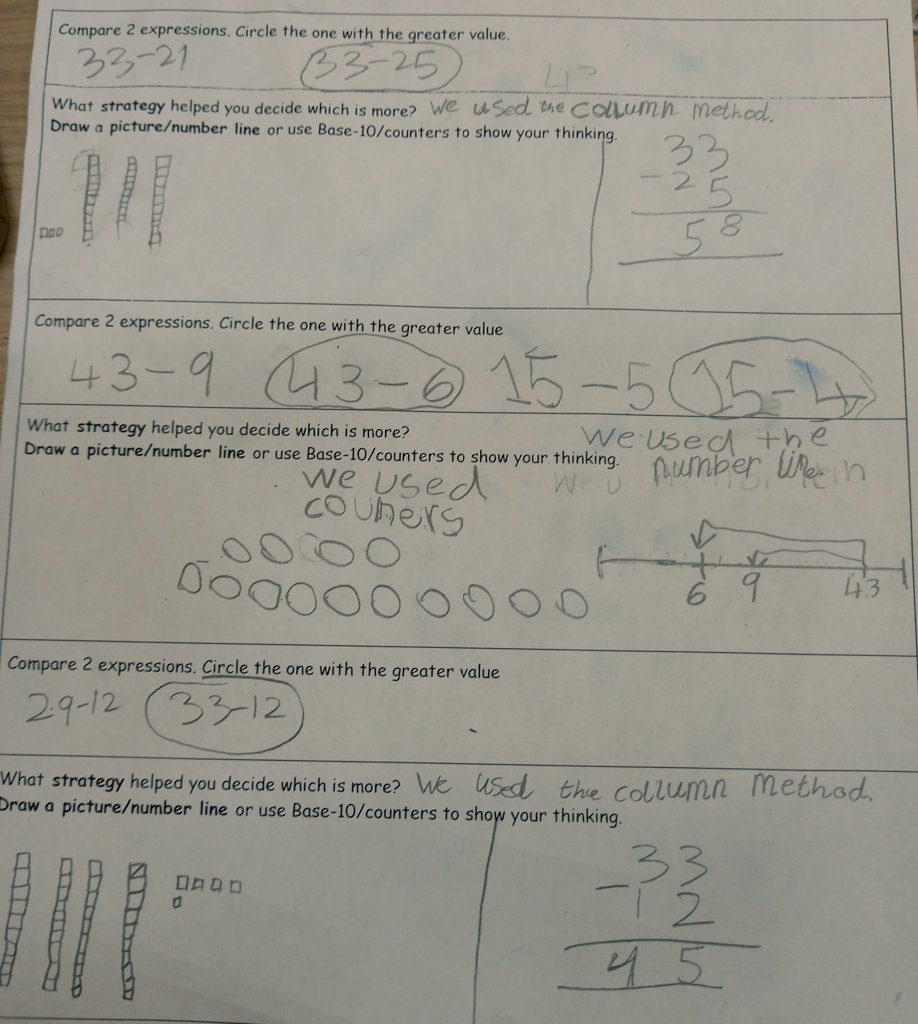 Compare 2 expressions. Circle the one with the greater value.
33-21 33-25
What strategy helped you decide which is more? We used the column method.
Draw a picture/number line or use Base-10/counters to show your thinking.
33
- 25
58
Compare 2 expressions. Circle the one with the greater value
43-9 43-6 15-5 15-4
What strategy helped you decide which is more? We used the
Draw a picture/number line or use Base-10/counters to show your thinking. number line
We used
couners
6 9 43
Compare 2 expressions. Circle the one with the greater value
29-12 33-12
What strategy helped you decide which is more? We used the collumn method.
Draw a picture/number line or use Base-10/counters to show your thinking.
33
- 12
45